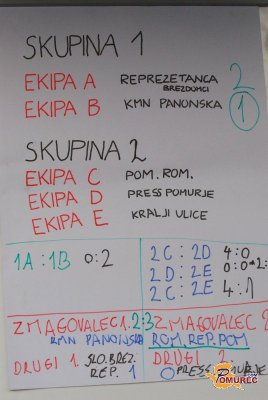 SKUPINA 1
EKIPA A REPREZETANCA 2
BREZDOMCI
EKIPA B KMN PANONSKA 1
SKUPINA 2
EKIPA C POM. ROM.
EKIPA D PRESS POMURJE
EKIPA E KRALJI ULICE
1A : 1B 0:2
2C : 2D 4:0
2D : 2E 0:0*2:
2C : 2E 4:1
ZMAGOVALEC 1. 2:3 ZMAGOVALEC 2
KMN PANONSKA ROM. REP. POM
DRUGI 1. SLO. BREZ. DRUGI 2
REP. 1 0 PRESS POMURJE
POMUREC